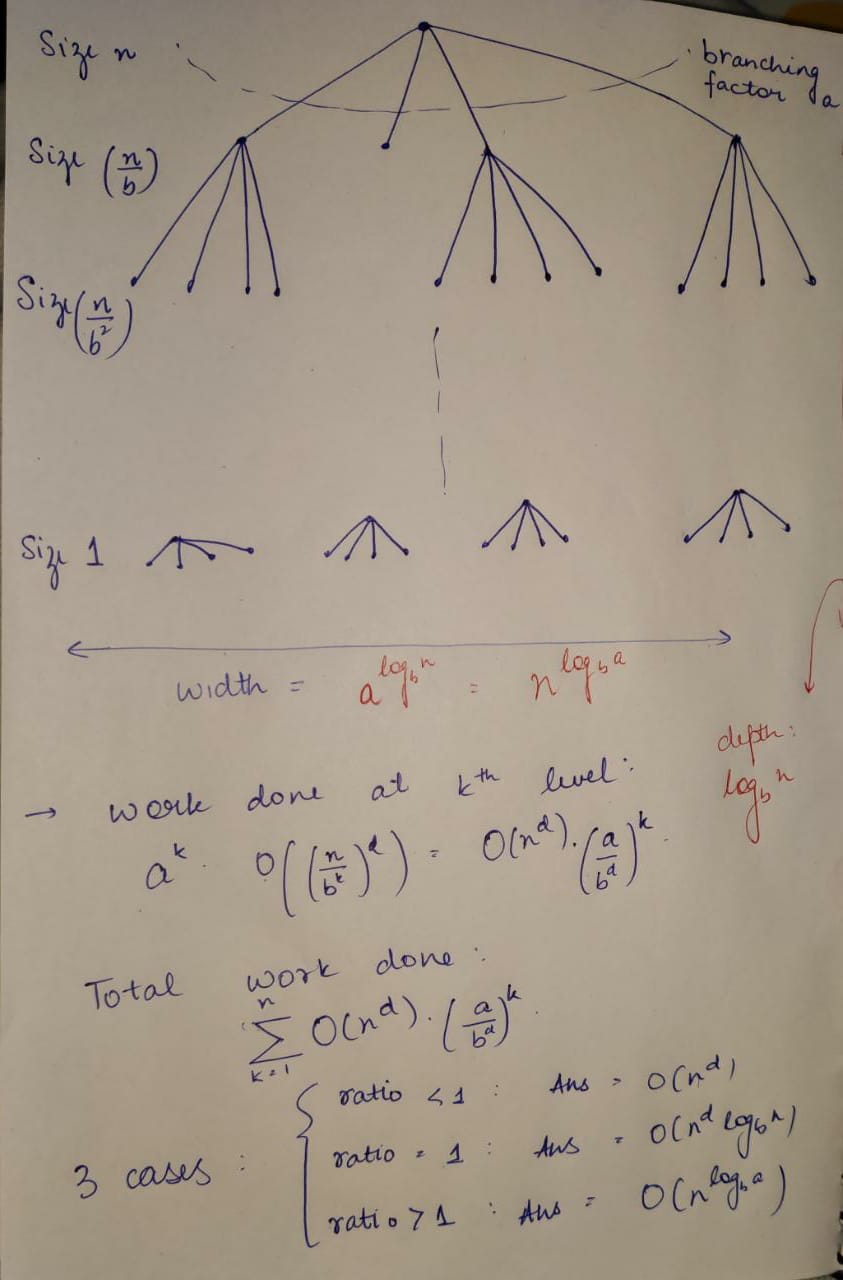 Size n
branching
factor a
Size (n/b)
Size (n/b²)
Size 1
width = a^(log_b n) = n^(log_b a)
depth:
log_b n
→ work done at kth level:
a^k . O((n/b^k)^d) = O(n^d).(a/b^d)^k.
Total work done:
∑_{k=1}^{n} O(n^d).(a/b^d)^k.
3 cases: { ratio < 1 : Ans = O(n^d)
ratio = 1 : Ans = O(n^d log_b n)
ratio > 1 : Ans = O(n^(log_b a))